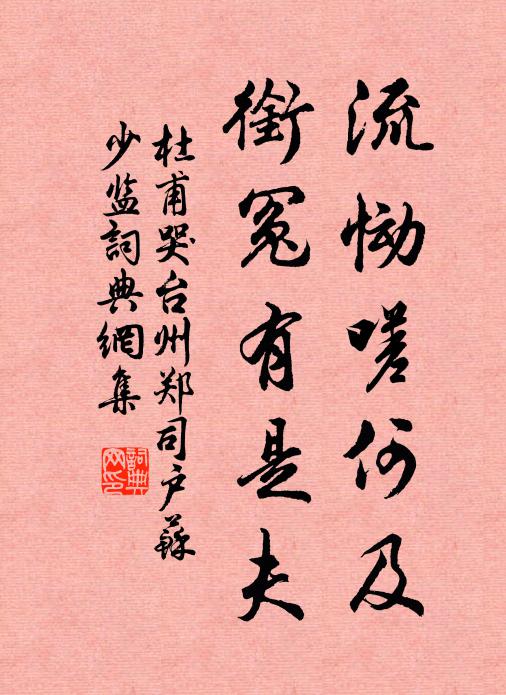 流恸嗟何及
銜冤有是夫
杜甫哭台州郑司户蘇
少监詞典網集
詞典
网印